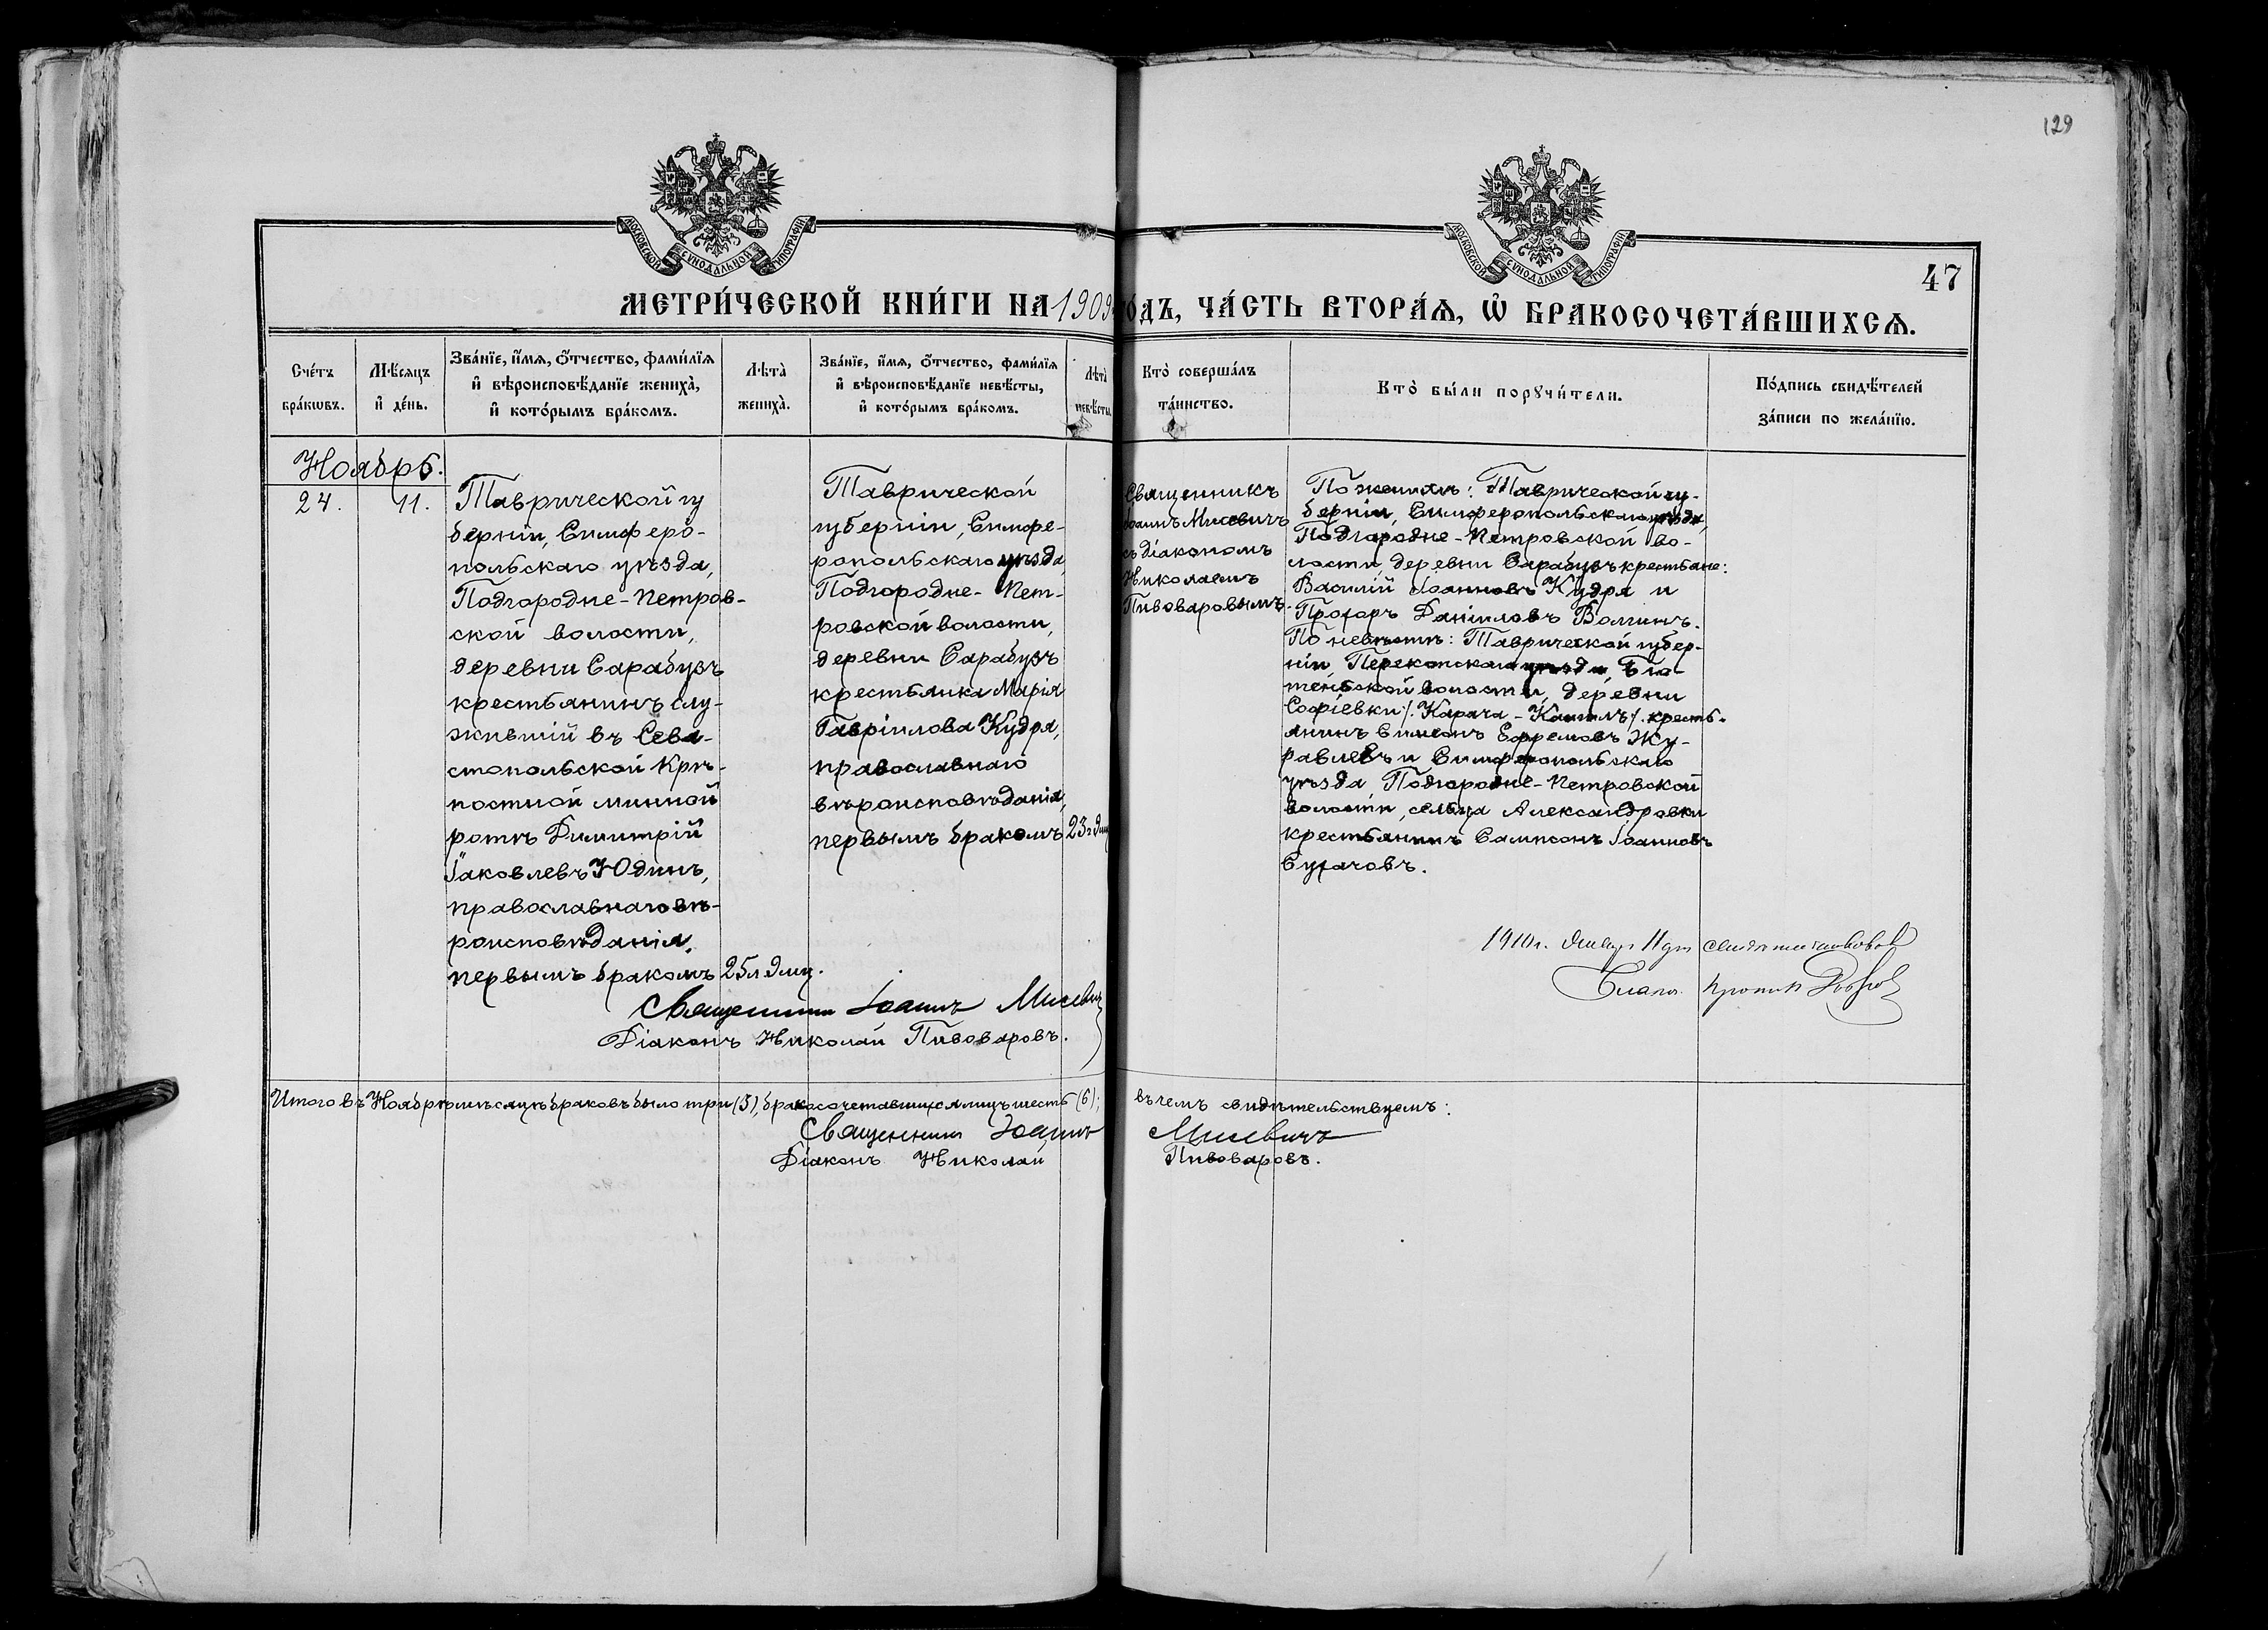 129
МОСКОВСКОЙ СУНОДАЛЬНОЙ ТИПОГРАФІИ
МОСКОВСКОЙ СУНОДАЛЬНОЙ ТИПОГРАФІИ
47
МЕТРИ́ЧЕСКОЙ КНИ́ГИ НА 1909 ГО́ДЪ, ЧА́СТЬ ВТОРА́Ѧ, Ѡ҆ БРАКОСОЧЕТА́ВШИХСѦ.
Сче́тъ
бра́кѡвъ.
Мѣ́сяцъ
и҆ де́нь.
Зва́нїе, и҆́мѧ, ѻ҆́тчество, фами́лїѧ
и҆ вѣроисповѣ́данїе жениха̀,
и҆ кото́рымъ бра́комъ.
Лѣта̀
жениха̀.
Зва́нїе, и҆́мѧ, ѻ҆́тчество, фами́лїѧ
и҆ вѣроисповѣ́данїе невѣ́сты,
и҆ кото́рымъ бра́комъ.
Лѣта̀
невѣ́сты.
Кто̀ соверша́лъ
та́инство.
Кто̀ бы́ли порꙋчи́тели.
По́дпись свидѣ́телей
за́писи по жела́нїю.
Ноябрь.
24.
11.
Таврической гу
берніи, Симферо-
польскаго уѣзда,
Подгородне-Петров-
ской волости,
деревни Сарабузъ
крестьянинъ слу-
жившій въ Сева-
стопольской Крѣ-
постной минной
ротѣ Димитрій
Іаковлевъ Юдинъ,
православнаго вѣ-
роисповѣданія,
первымъ бракомъ
25 л.
Таврической
губерніи, Симфе-
ропольскаго уѣзда,
Подгородне-Пет-
ровской волости,
деревни Сарабузъ
крестьянка Марія
Гавріилова Кудря,
православнаго
вѣроисповѣданія,
первымъ бракомъ
23
Священникъ
Іоаннъ Мисевичъ
съ діакономъ
Николаемъ
Пивоваровымъ.
По женихѣ: Таврической гу-
берніи, Симферопольскаго уѣзда,
Подгородне-Петровской во-
лости, деревни Сарабузъ крестьяне:
Василій Іоанновъ Кудря и
Прохоръ Даніиловъ Волгинъ.
По невѣстѣ: Таврической губер-
ніи Перекопскаго уѣзда,
волости, деревни
Софіевки /. Карача - /. кресть-
янинъ Симеонъ Ефремовъ Жу-
равлевъ и Симферопольскаго
уѣзда, Подгородне-Петровской
волости, сельца Александровки
крестьянинъ Сампсонъ Іоанновъ
Сугачовъ.
1910 г. Января 11 дня свидѣтельствовалъ
Благоч.
Священникъ Іоаннъ Мисевичъ
Діаконъ Николай Пивоваровъ.
Итого въ Ноябрѣ мѣсяцѣ браковъ было три (3), бракосочетавшихся лицъ шесть (6); въ чемъ свидѣтельствуемъ:
Священникъ Іоаннъ Мисевичъ
Діаконъ Николай Пивоваровъ.